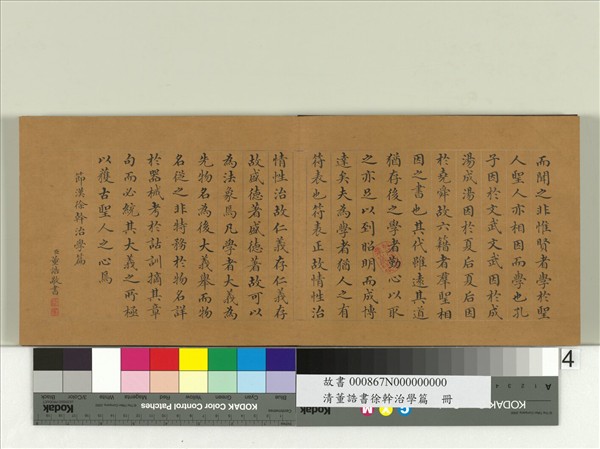 而聞之非惟賢者學於聖
人聖人亦相因而學也孔
子因於文武文武因於成
湯成湯因於夏后夏后因
於堯舜故六籍者羣聖相
因之書也其代雖遠其道
猶存後之學者勤心以取
之亦足以到昭明而成博
達矣夫為學者猶人之有
符表也符表正故情性治
情性治故仁義存仁義存
故盛德著盛德著故可以
為法象焉凡學者大義為
先物名為後大義舉而物
名從之非特務於物名詳
於器械考於詁訓摘其章
句而必統其大義之所極
以獲古聖人之心焉
節漢徐幹治學篇
臣董誥敬書
4
Kodak
KODAK Color Control Patches
Black
3/Color
White
Magenta
Red
Yellow
Green
Cyan
Blue
故書 000867N000000000
清董誥書徐幹治學篇 冊
C Y M
Kodak
A